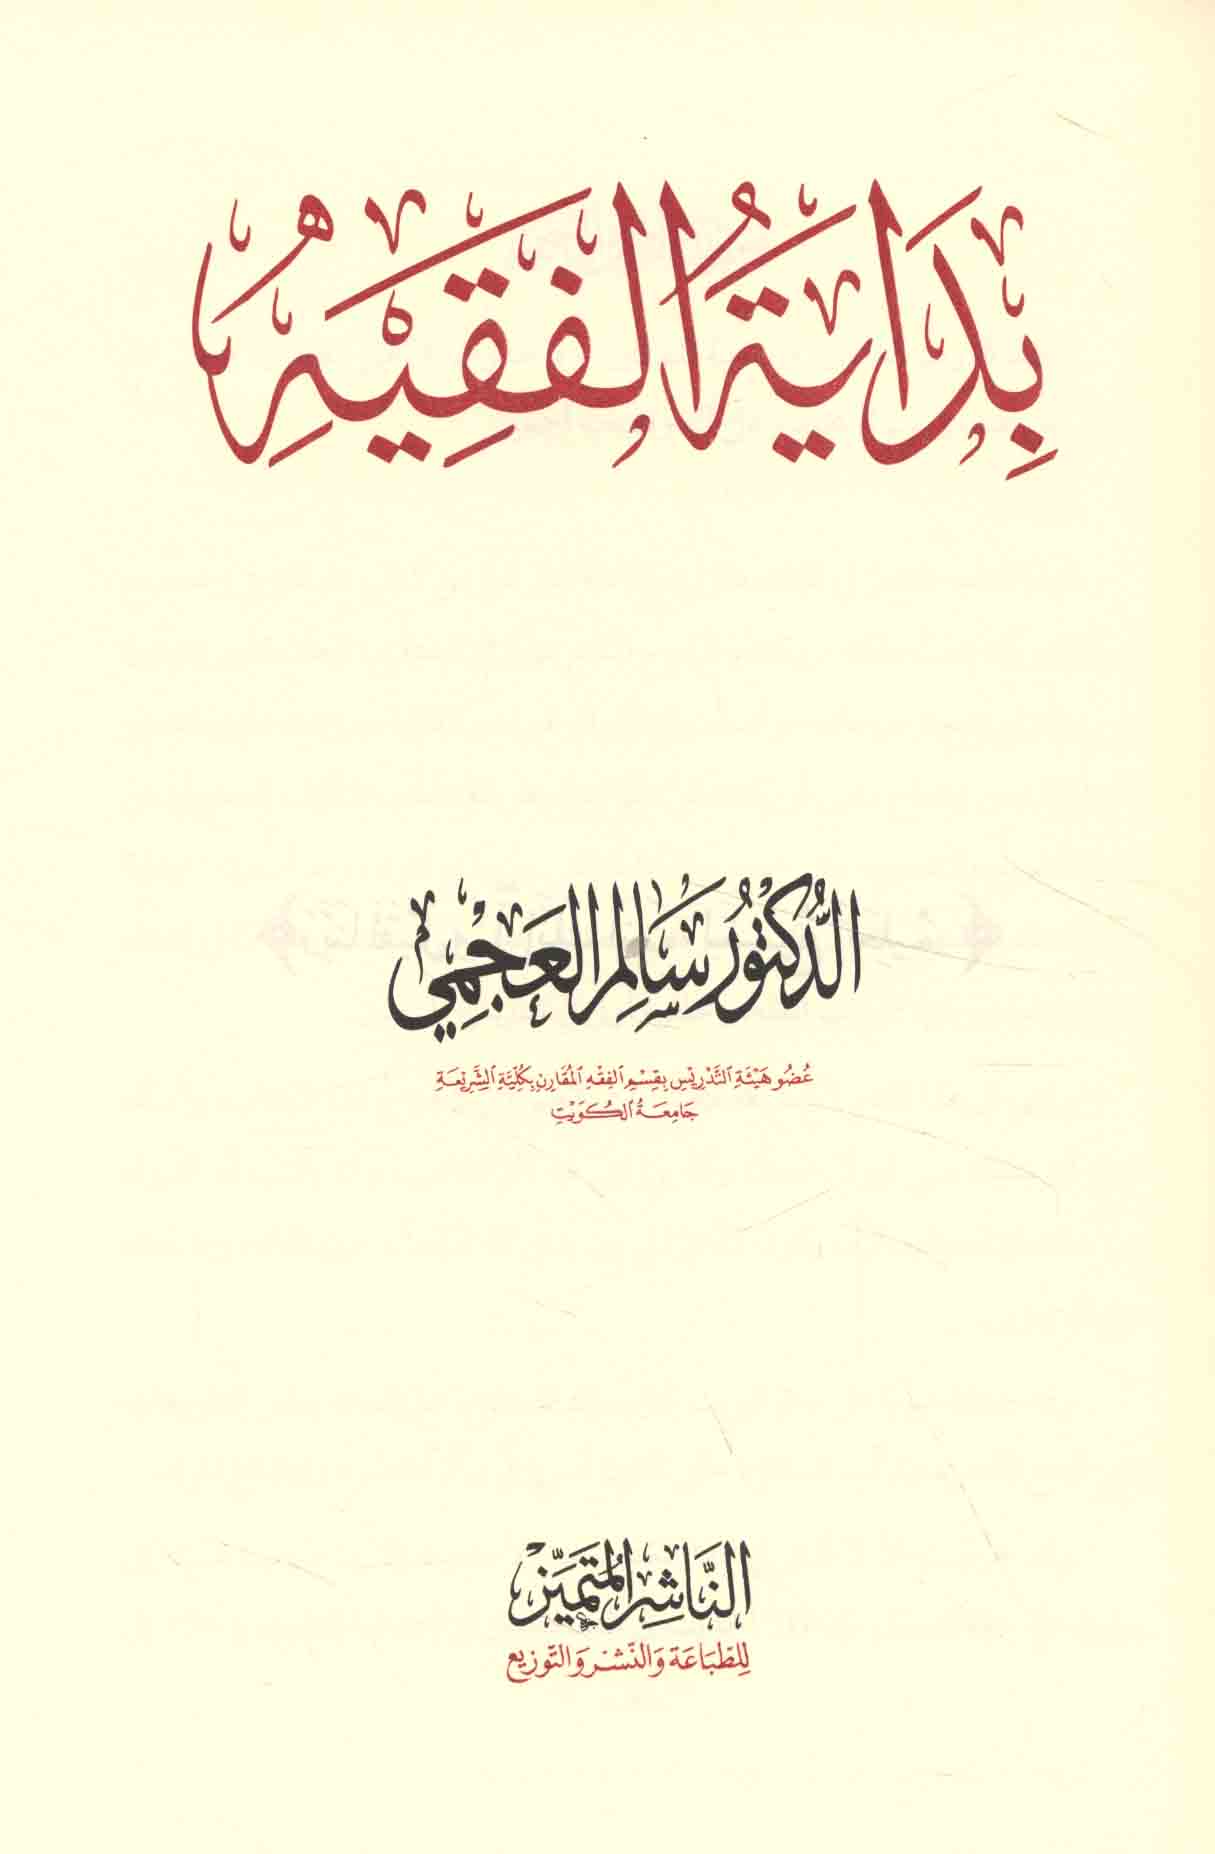 بِدَايَةُ الفَقِيهِ
الدُّكتُور سَالِم العَجمِي
عُضُو هَيْئَةِ التَّدْرِيْسِ بِقِسْمِ الفِقْهِ المُقَارِنِ بِكُلِّيَّةِ الشَّرِيْعَةِ
جَامِعَةُ الكُوَيْتِ
النَّاشِر المُتَمَيِّز
لِلطِّبَاعَة وَالنَّشْر وَالتَّوْزِيع